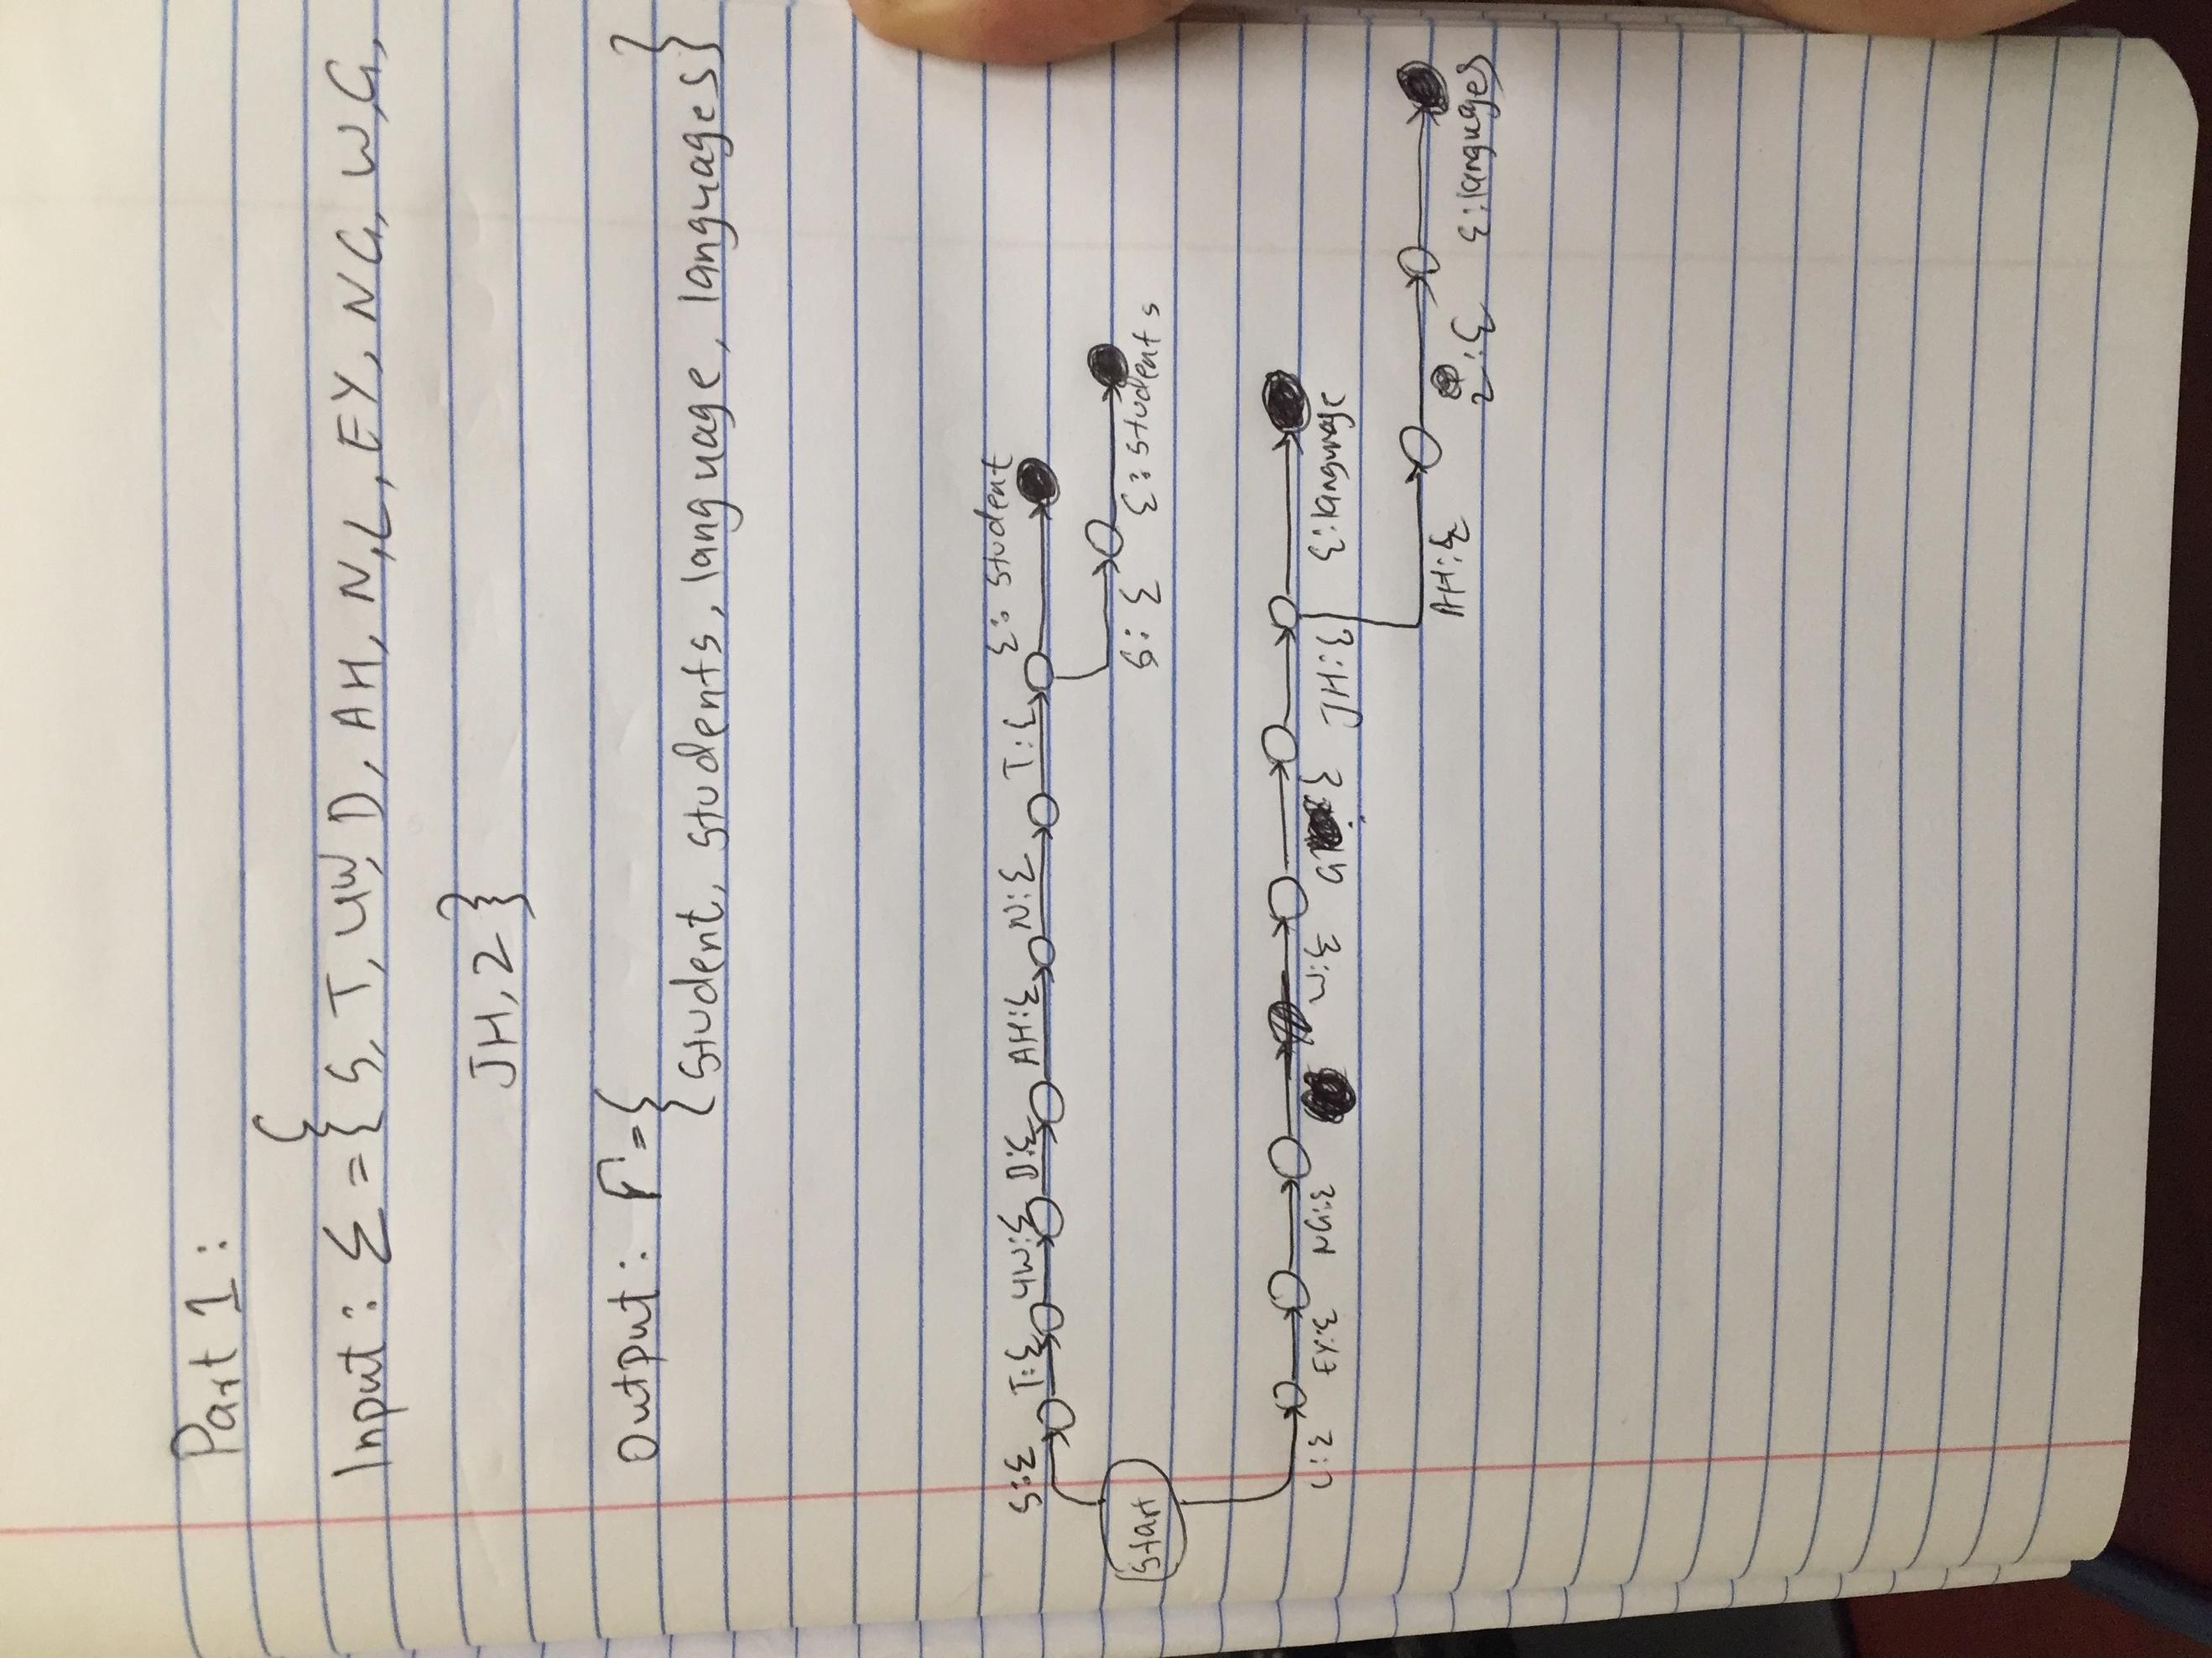 Part 1:
Input: Σ = { S, T, UW, D, AH, N, L, EY, NG, W, G,
JH, Z }
Output: Γ = {
{ student, students, language, languages }
S:ε T:ε UW:ε D:ε AH:ε N:ε T:ε ε: student
S: ε ε: students
Start
L:ε EY:ε NG:ε W:ε G:ε JH:ε ε:language
AH:ε Z:ε ε:languages